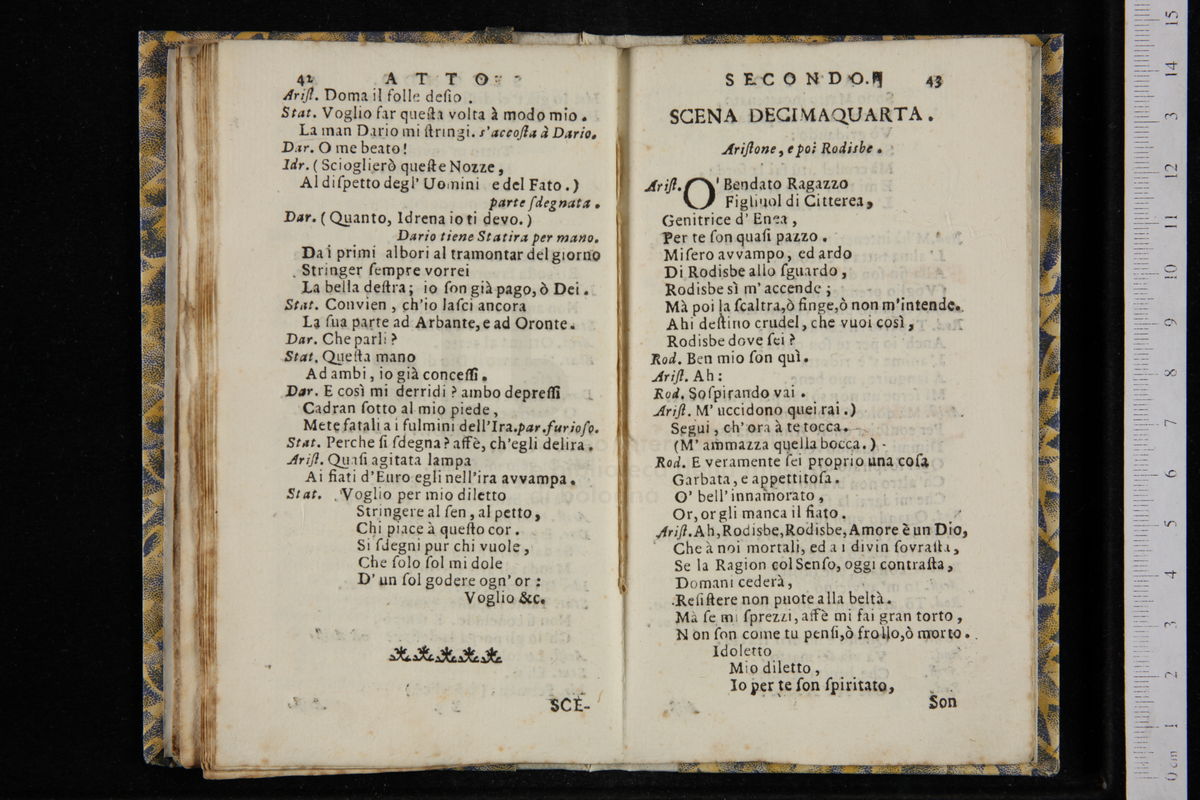 42 ATTO
Arist. Doma il folle desio .
Stat. Voglio far questa volta à modo mio .
La man Dario mi stringi. s'accosta à Dario.
Dar. O me beato!
Idr. ( Scioglierò queste Nozze ,
Al dispetto degl' Uomini e del Fato . )
parte sdegnata .
Dar. ( Quanto, Idrena io ti devo . )
Dario tiene Statira per mano.
Dai primi albori al tramontar del giorno
Stringer sempre vorrei
La bella destra ; io son già pago, ò Dei .
Stat. Convien , ch'io lasci ancora
La sua parte ad Arbante, e ad Oronte .
Dar. Che parli ?
Stat. Questa mano
Ad ambi , io già concessi .
Dar. E così mi derridi ? ambo depressi
Cadran sotto al mio piede ,
Mete fatali a i fulmini dell'Ira. par. furioso.
Stat. Perche si sdegna? affè, ch'egli delira .
Arist. Quasi agitata lampa
Ai fiati d'Euro egli nell'ira avvampa .
Stat. Voglio per mio diletto
Stringere al sen , al petto ,
Chi piace à questo cor .
Si sdegni pur chi vuole ,
Che solo sol mi dole
D' un sol godere ogn' or :
Voglio &c.
SCE-
SECONDO. 43
SCENA DECIMAQUARTA .
Aristone , e poi Rodisbe .
Arist. O' Bendato Ragazzo
Figliuol di Citterea ,
Genitrice d' Enea ,
Per te son quasi pazzo .
Misero avvampo , ed ardo
Di Rodisbe allo sguardo ,
Rodisbe sì m' accende ;
Mà poi la scaltra, ò finge, ò non m'intende.
Ahi destino crudel , che vuoi così ,
Rodisbe dove sei ?
Rod. Ben mio son quì .
Arist. Ah :
Rod. Sospirando vai .
Arist. M' uccidono quei rai . )
Segui , ch' ora à te tocca .
(M' ammazza quella bocca . )
Rod. E veramente sei proprio una cosa
Garbata , e appettitosa .
O' bell' innamorato ,
Or, or gli manca il fiato .
Arist. Ah, Rodisbe, Rodisbe, Amore è un Dio,
Che à noi mortali, ed a i divin sovrasta ,
Se la Ragion col Senso, oggi contrasta ,
Domani cederà ,
Resistere non puote alla beltà .
Mà se mi sprezzi, affè mi fai gran torto ,
Non son come tu pensi, ò frollo, ò morto .
Idoletto
Mio diletto ,
Io per te son spiritato ,
Son